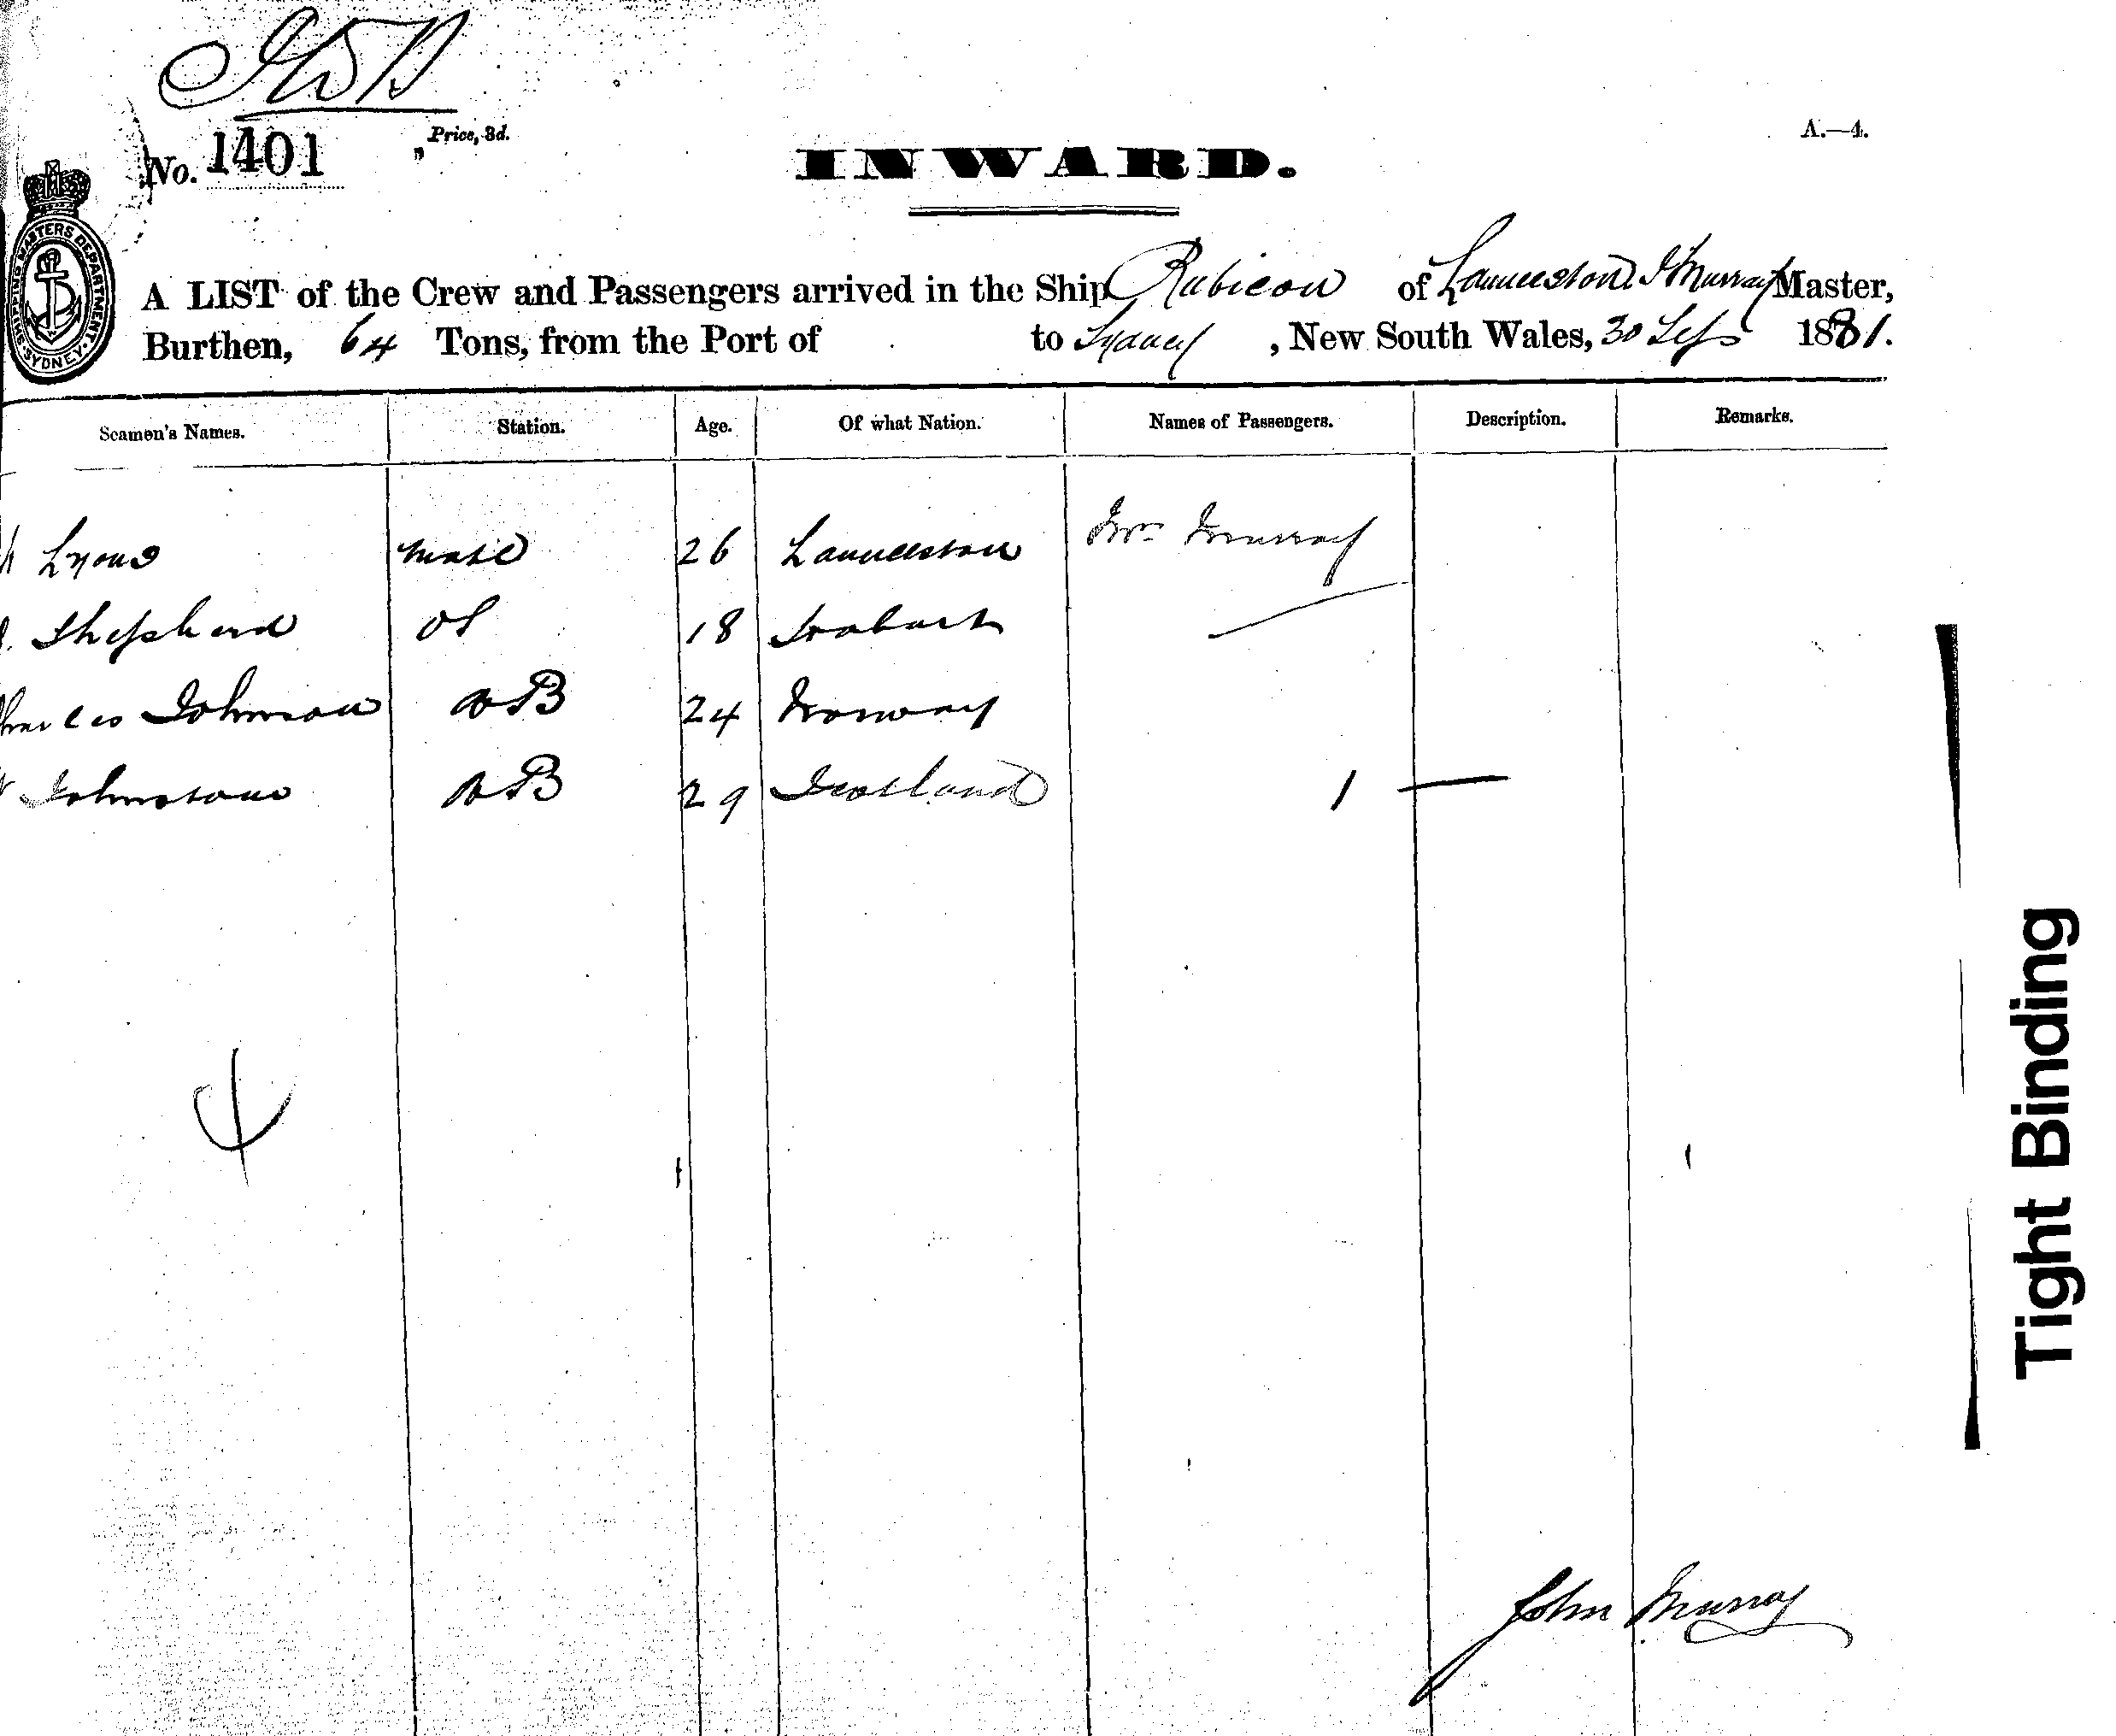 No. 1401
Price, 3d.
A.—4.
INWARD.
SHIPPING MASTERS DEPARTMENT SYDNEY
A LIST of the Crew and Passengers arrived in the Ship Rubicon of Launceston J Murray Master,
Burthen, 64 Tons, from the Port of to Sydney, New South Wales, 30 Sep 1881.
Seamen's Names. Station. Age. Of what Nation. Names of Passengers. Description. Remarks.
Lyons mate 26 Launceston Mrs Murray
Shepherd OS 18 Hobart
Charles Johnson AB 24 Norway
Johnstone AB 29 Scotland 1 —
4
John Murray
Tight Binding